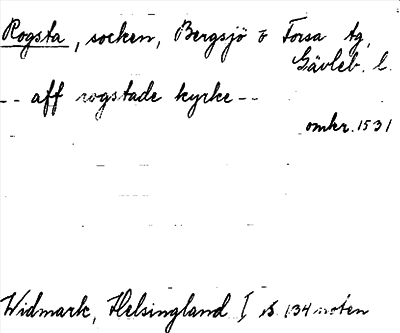 Rogsta, socken, Bergsjö o Forsa tg,
Gävleb. l.
-- aff rogstade kyrke --
omkr. 1531
Widmark, Helsingland I, s. 134 noten